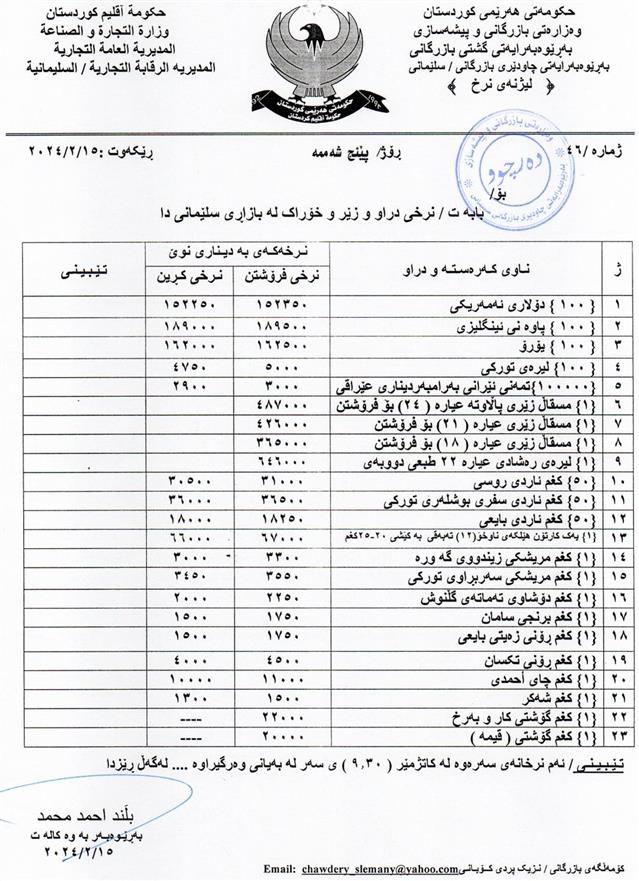 حکومەتی هەرێمی کوردستان
وەزارەتی بازرگانی و پیشەسازی
بەرێوەبەرایەتی گشتی بازرگانی
بەرێوەبەرایەتی چاودێری بازرگانی / سلێمانی
﴿ لیژنەی نرخ ﴾
حكومة أقليم كوردستان
وزارة التجارة و الصناعة
المديرية العامة التجارية
المديريه الرقابة التجارية / السليمانية
1992
حکومەتی هەرێمی کوردستان
حكومة أقليم كردستان
ژمارە /٤٦
ڕۆژ/ پێنج شەممە
ڕێکەوت :٢٠٢٤/٢/١٥
دەرچوو
بۆ/
بابە ت / نرخی دراو و زێر و خۆراک لە بازاڕی سلێمانی دا
ژ ناوی کەرەستە و دراو نرخەکەی بە دیناری نوێ تێبینی
نرخی فرۆشتن نرخی کڕین
١ {١٠٠} دۆلاری ئەمەریکی ١٥٢٣٥٠ ١٥٢٢٥٠
٢ {١٠٠} پاوە نی ئینگلیزی ١٨٩٥٠٠ ١٨٩٠٠٠
٣ {١٠٠} یۆرۆ ١٦٢٥٠٠ ١٦٢٠٠٠
٤ {١٠٠} لیرەی تورکی ٥٠٠٠ ٤٧٥٠
٥ {١٠٠٠٠٠}تمەنی ئێرانی بەرامبەردیناری عێراقی ٣٠٠٠ ٢٩٠٠
٦ {١} مسقاڵ زێری پاڵاوتە عیارە ( ٢٤ ) بۆ فرۆشتن ٤٨٧٠٠٠
٧ {١} مسقاڵ زێری عیارە ( ٢١ ) بۆ فرۆشتن ٤٢٦٠٠٠
٨ {١} مسقاڵ زێری عیارە ( ١٨ ) بۆ فرۆشتن ٣٦٥٠٠٠
٩ {١} لیرەی رەشادی عیارە ٢٢ طبعی دووبەی ٦٤٦٠٠٠
١٠ {٥٠} کغم ئاردی روسی ٣١٠٠٠ ٣٠٥٠٠
١١ {٥٠} کغم ئاردی سفری بوشلەری تورکی ٣٦٥٠٠ ٣٦٠٠٠
١٢ {٥٠} کغم ئاردی بایعی ١٨٢٥٠ ١٨٠٠٠
١٣ {١} یەک کارتۆن هێلکەی ناوخۆ(١٢) تەبەقی بە کێشی ٢٠-٢٥کغم ٦٧٠٠٠ ٦٦٠٠٠
١٤ {١} کغم مریشکی زیندووی گە ورە ٣٣٠٠ ٣٠٠٠
١٥ {١} کغم مریشکی سەربڕاوی تورکی ٣٥٥٠ ٣٤٥٠
١٦ {١} کغم دۆشاوی تەماتەی گڵنوش ٢٢٥٠ ٢٠٠٠
١٧ {١} کغم برنجی سامان ١٧٥٠ ١٥٠٠
١٨ {١} کغم ڕۆنی زەیتی بایعی ١٧٥٠ ١٥٠٠
١٩ {١} کغم ڕۆنی تکسان ٤٥٠٠ ٤٠٠٠
٢٠ {١} کغم چای أحمدی ١١٠٠٠ ١٠٠٠٠
٢١ {١} کغم شەکر ١٥٠٠ ١٣٠٠
٢٢ {١} کغم گۆشتی کار و بەرخ ٢٢٠٠٠ ----
٢٣ {١} کغم گۆشتی ( قیمە ) ٢٠٠٠٠ ----
تێبینی/ ئەم نرخانەی سەرەوە لە کاتژمێر ( ٩,٣٠ ) ی سەر لە بەیانی وەرگیراوە .... لەگەڵ ڕێزدا
بڵند احمد محمد
بەرێوەبەر بە وە کالە ت
٢٠٢٤/٢/١٥
کۆمەڵگەی بازرگانی / نزیک پردی کۆبانی Email: chawdery_slemany@yahoo.com